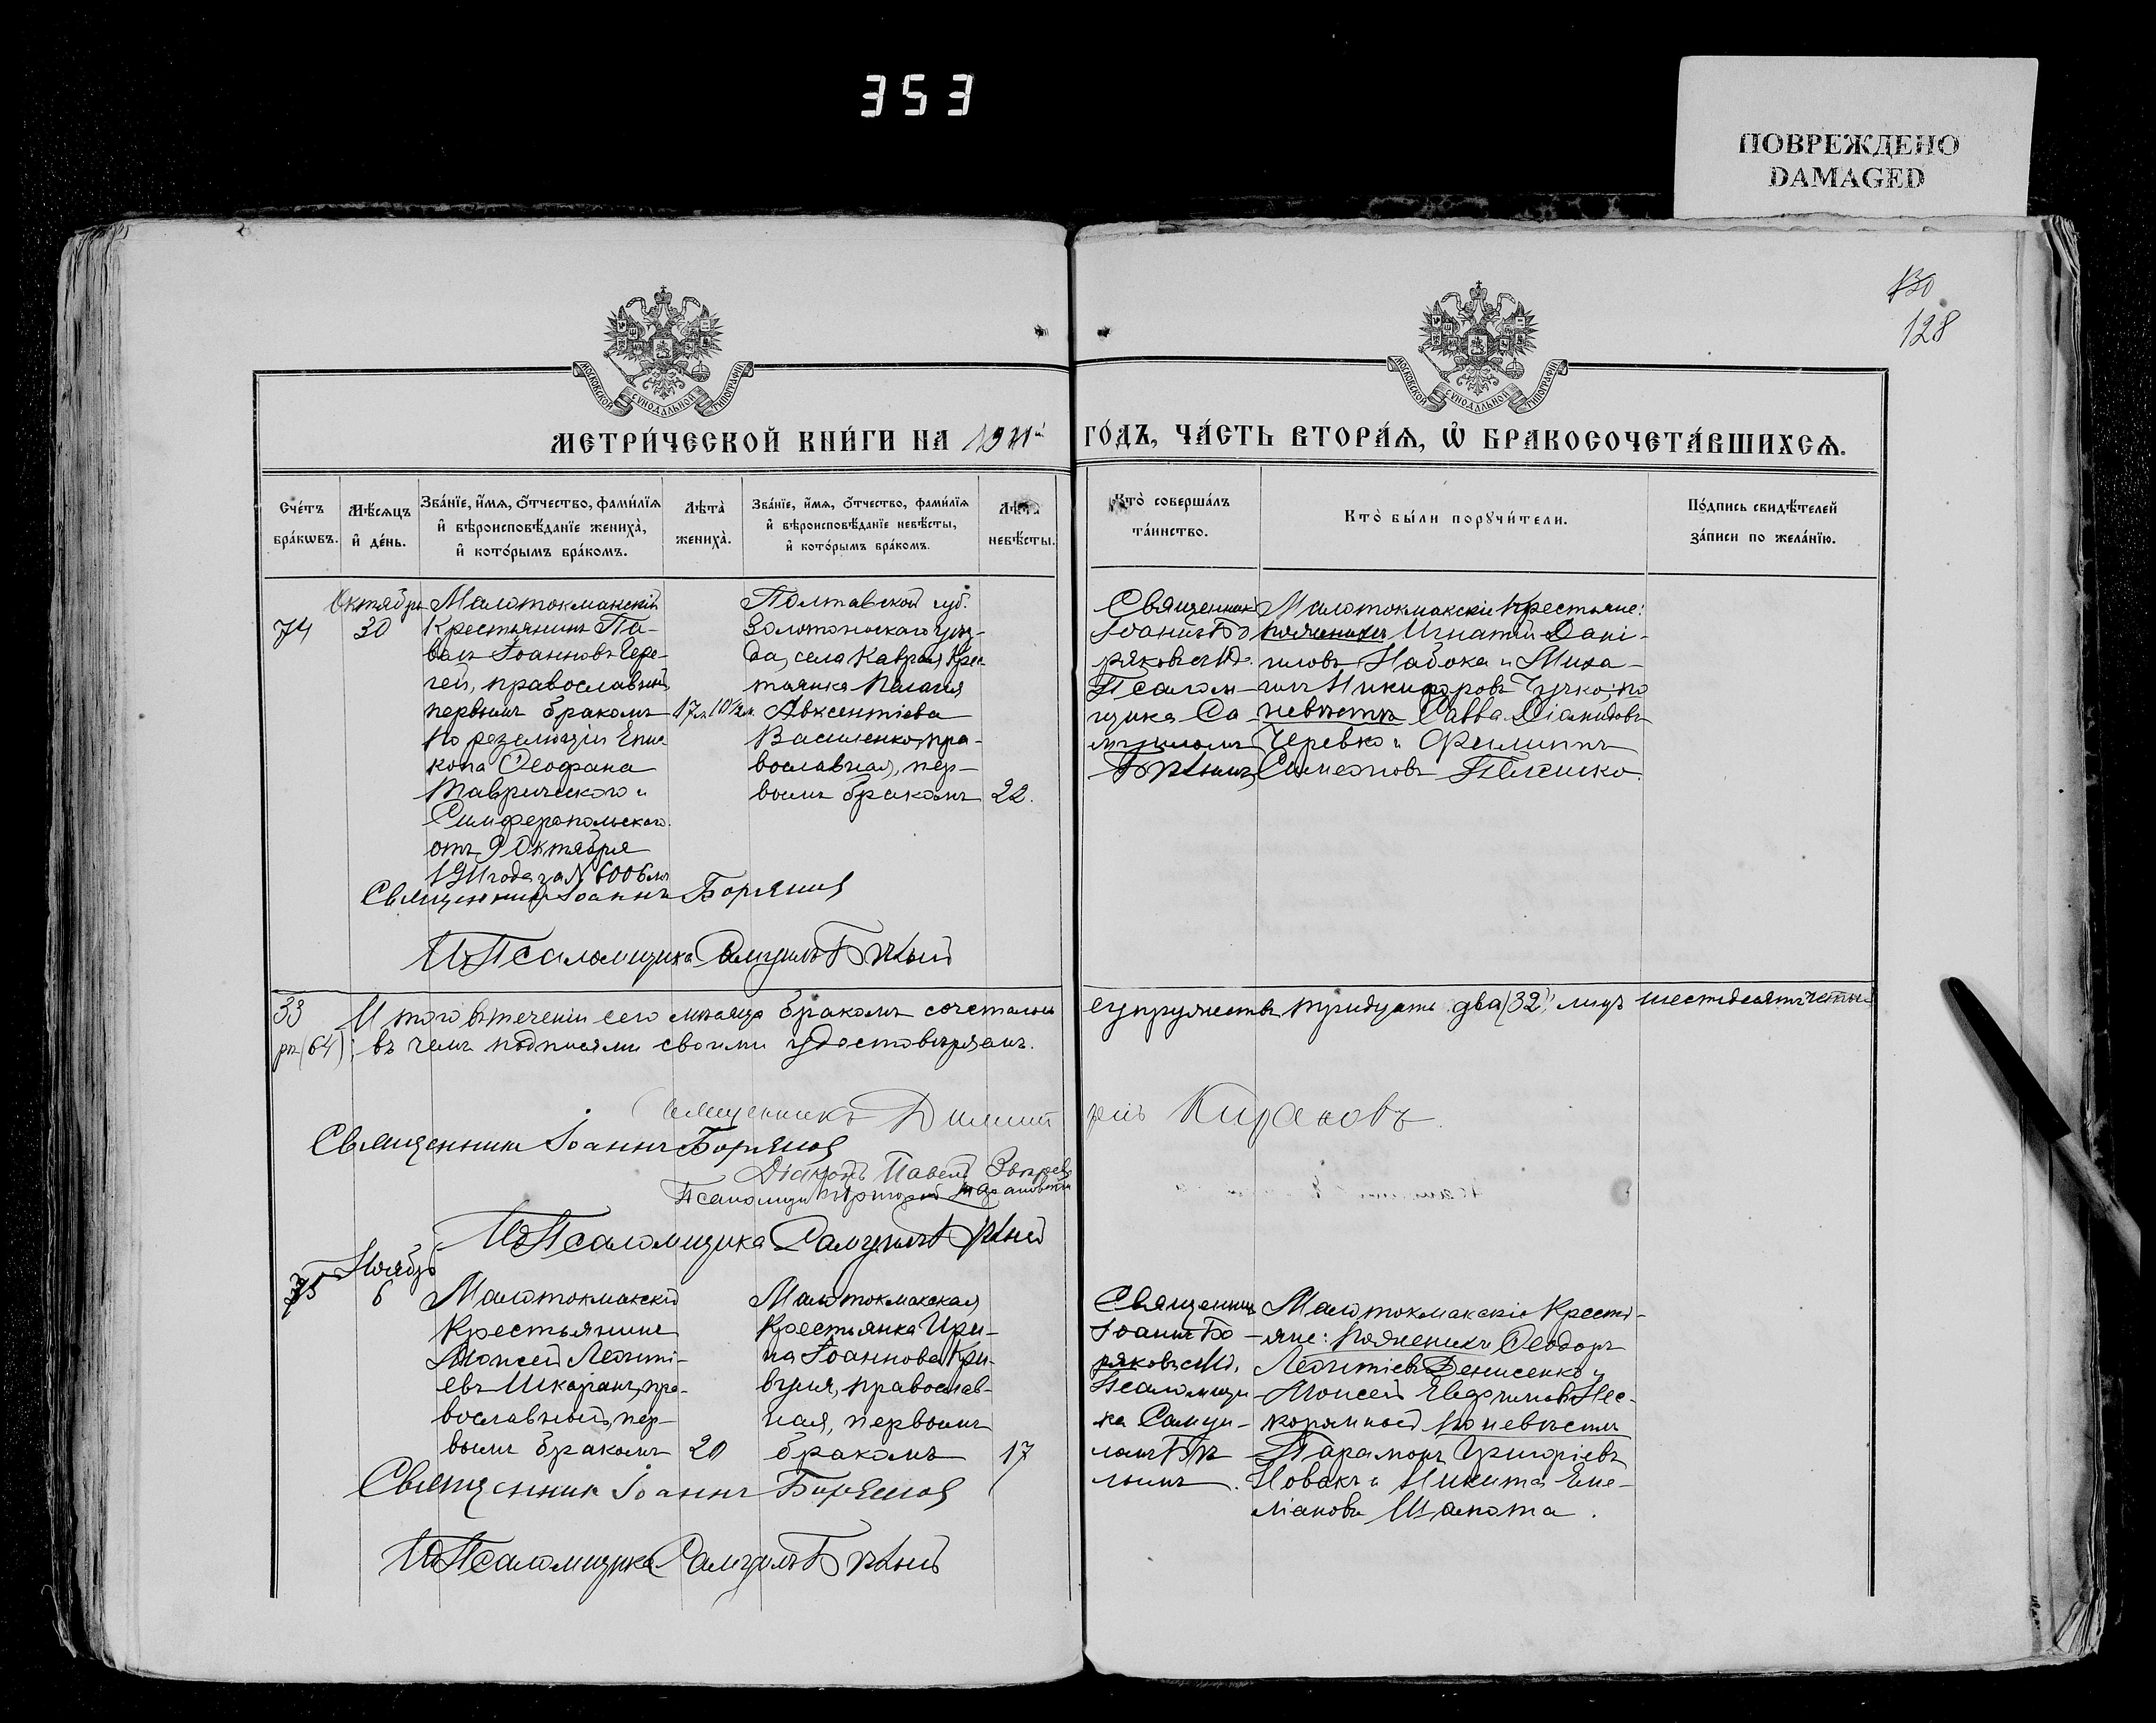 353
ПОВРЕЖДЕНО
DAMAGED
130
128
МОСКОВСКОЙ СѴНОДАЛЬНОЙ ТИПОГРАФІИ
МОСКОВСКОЙ СѴНОДАЛЬНОЙ ТИПОГРАФІИ
МЕТРИ́ЧЕСКОЙ КНИ́ГИ НА 1911й ГО́ДЪ, ЧА́СТЬ ВТОРА́Ѧ, Ѡ҆ БРАКОСОЧЕТА́ВШИХСѦ.
Сче́тъ
бра́кѡвъ.
Мѣ́сѧцъ
и҆ де́нь.
Зва́нїе, и҆́мѧ, ѻ҆́тчество, фами́лїѧ
и҆ вѣроисповѣ́данїе жениха̀,
и҆ кото́рымъ бра́комъ.
Лѣта̀
жениха̀.
Зва́нїе, и҆́мѧ, ѻ҆́тчество, фами́лїѧ
и҆ вѣроисповѣ́данїе невѣ́сты,
и҆ кото́рымъ бра́комъ.
Лѣта̀
невѣ́сты.
Кто̀ соверша́лъ
та́инство.
Кто̀ бы́ли порꙋчи́тели.
По́дпись свидѣ́телей
за́писи по жела́нїю.
74
Октябрь
30
Малотокмакскій
крестьянинъ Па-
велъ Іоанновъ Чере-
пей, православный,
первымъ бракомъ
по резолюціи Епис
копа Ѳеофана
Таврическаго и
Симферопольскаго
отъ 9 Октября
1911 года за № 6006
17 л. 10½ м.
Полтавской губ.
Золотоноскаго уѣз-
да, села Каврая крес
тьянка Пелагія
Авксентіева
Василенко, пра-
вославная, пер-
вымъ бракомъ
22.
Священникъ
Іоаннъ Бо
ряковъ съ И.д.
Псалом-
щика Са
муиломъ
Бѣлымъ
Малотокмакскіе крестьяне:
по женихѣ Игнатій Дані-
иловъ Набока и Миха-
илъ Никифоровъ Чучко; по
невѣстѣ Савва Діамидовъ
Черевко и Филиппъ
Симеоновъ
Священникъ Іоаннъ Боряковъ
И.д. Псаломщика Самуилъ Бѣлый
33
Итого въ теченіи сего мѣсяца бракомъ сочеталось супружествъ тридцать два (32), лицъ шестьдесятъ четы
ре (64) въ чемъ подписями своими удостовѣряемъ.
Священникъ Димитрій Кираковъ.
Священникъ Іоаннъ Боряковъ
Діаконъ Павелъ Звѣревъ
Псаломщикъ Григорій
И.д. Псаломщика Самуилъ Бѣлый
75
Ноябрь
6
Малотокмакскій
крестьянинъ
Моисей Леонті-
евъ Шкаранъ, пра-
вославный, пер-
вымъ бракомъ
20
Малотокмакская
крестьянка Ири-
на Іоаннова Кри-
вуля, православ-
ная, первымъ
бракомъ
17
Священникъ
Іоаннъ Бо-
ряковъ съ И.д.
Псаломщи-
ка Самуи-
ломъ Бѣ
лымъ.
Малотокмакскіе кресть-
яне: по женихѣ Ѳеодоръ
Леонтіевъ Денисенко и
Моисей Евдокимовъ Нес-
коромный по невѣстѣ
Парамонъ Григоріевъ
Новакъ и Никита Еме-
ліановъ Шапота.
Священникъ Іоаннъ Боряковъ
И.д. Псаломщика Самуилъ Бѣлый